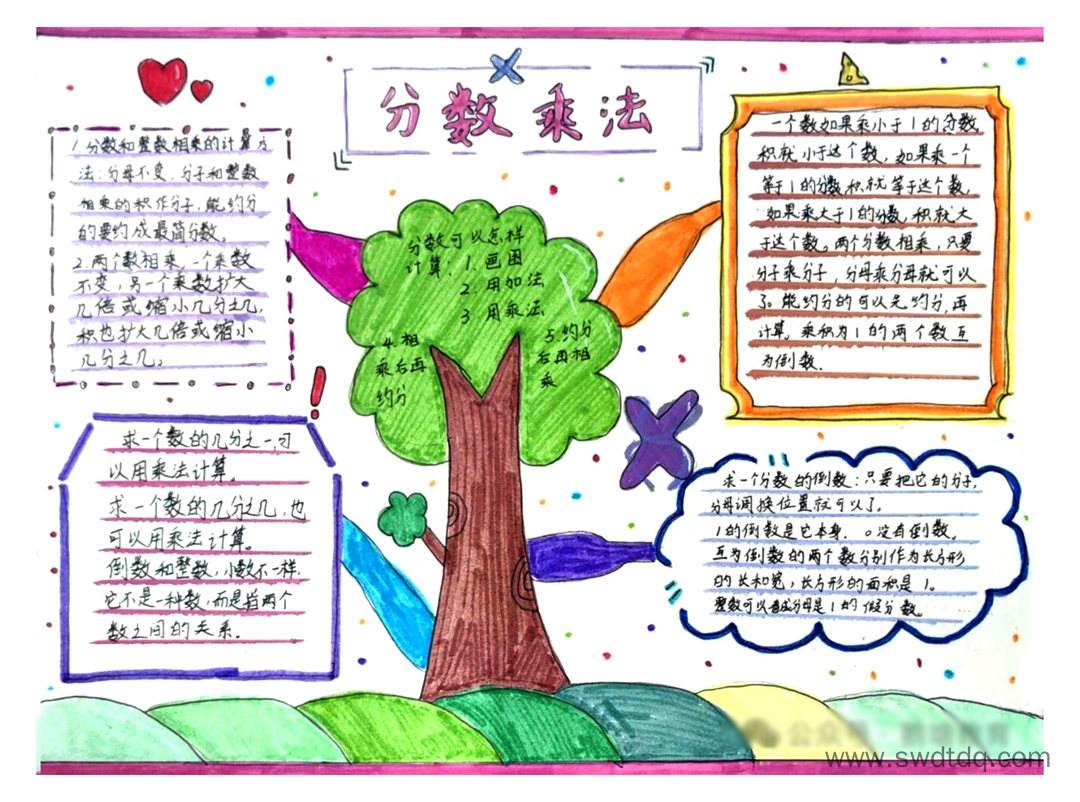 分数乘法
1.分数和整数相乘的计算方
法:分母不变,分子和整数
相乘的积作分子,能约分
的要约成最简分数。
2.两个数相乘,一个乘数
不变,另一个乘数扩大
几倍或缩小几分之几,
积也扩大几倍或缩小
几分之几。
分数可以怎样
计算:1.画图
2.用加法
3 用乘法
4.相
乘后再
约分
5.约分
后再相
乘
一个数如果乘小于1的分数,
积就小于这个数,如果乘一个
等于1的分数积就等于这个数,
如果乘大于1的分数,积就大
于这个数。两个分数相乘,只要
分子乘分子,分母乘分母就可以
了。能约分的可以先约分,再
计算。乘积为1的两个数互
为倒数.
求一个数的几分之一,可
以用乘法计算。
求一个数的几分之几,也
可以用乘法计算。
倒数和整数,小数不一样.
它不是一种数,而是指两个
数之间的关系.
求一个分数的倒数:只要把它的分子,
分母调换位置就可以了。
1的倒数是它本身. 0没有倒数。
互为倒数的两个数分别作为长方形
的长和宽,长方形的面积是1。
整数可以看成分母是1的假分数。
www.swdtdq.com